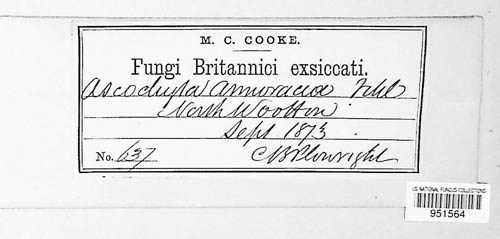 M. C. COOKE.
Fungi Britannici exsiccati.
Ascochyta armoraciae Fckl
North Wootton
Sept 1873
No. 637 C B Plowright
US NATIONAL FUNGUS COLLECTIONS
951564